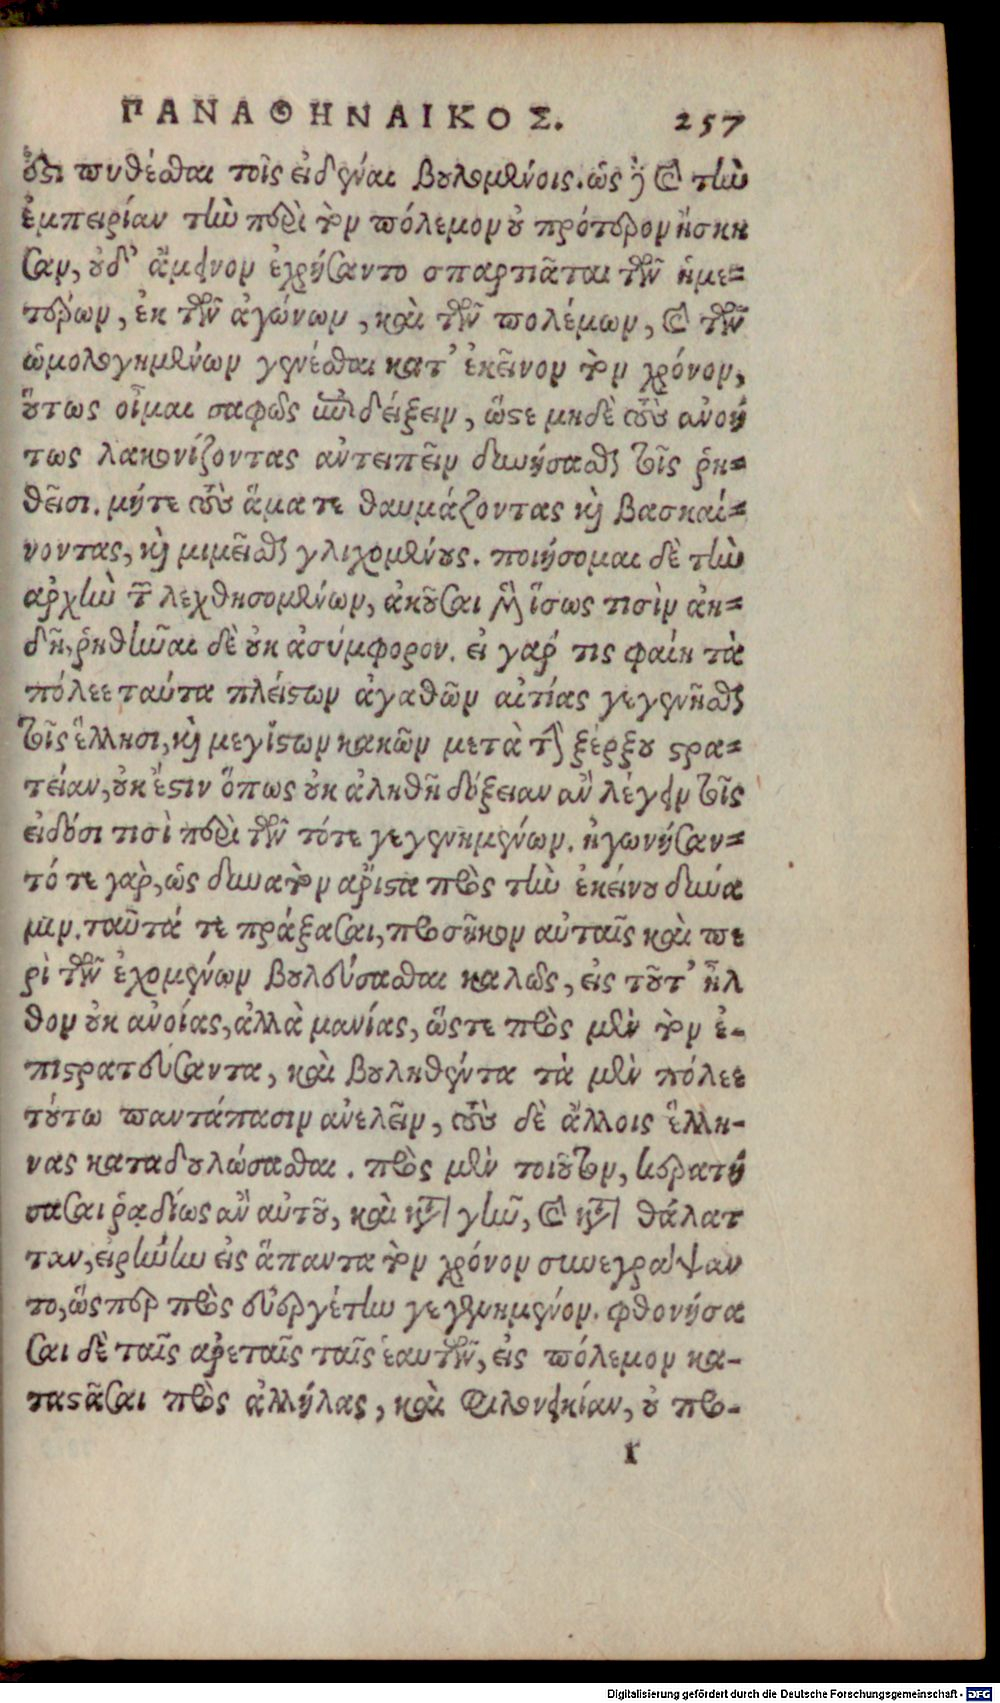 ΠΑΝΑΘΗΝΑΙΚΟΣ. 257
ὅϛι πυθέσθαι τοῖς εἰδέναι βουλομένοις. ὡς δὲ καὶ τὴν
ἐμπειρίαν τὴν περὶ τὸν πόλεμον οὐ πρότερον ἤσκη
σαν, οὐδ᾽ ἄμεινον ἐχρήσαντο σπαρτιᾶται τῶν ἡμε-
τέρων, ἐκ τῶν ἀγώνων, καὶ τῶν πολέμων, καὶ τῶν
ὡμολογημένων γενέσθαι κατ᾽ ἐκεῖνον τὸν χρόνον,
οὕτως οἶμαι σαφῶς ἐπιδείξειν, ὥστε μηδὲ τοὺς ἀνοή
τως λακονίζοντας ἀντειπεῖν δυνήσασθαι τοῖς ῥη-
θεῖσι. μήτε τοὺς ἅμα τε θαυμάζοντας καὶ βασκαί-
νοντας, καὶ μιμεῖσθαι γλιχομένους. ποιήσομαι δὲ τὴν
ἀρχὴν τῶν λεχθησομένων, ἀκοῦσαι μὲν ἴσως τισὶν ἀη-
δῆ, ῥηθῆναι δὲ οὐκ ἀσύμφορον. εἰ γάρ τις φαίη τὰ
πόλεε ταύτα πλείστων ἀγαθῶν αἰτίας γεγενῆσθαι
τοῖς ἕλλησι, καὶ μεγίστων κακῶν μετὰ τὴν ξέρξου στρα-
τείαν, οὐκ ἔστιν ὅπως οὐκ ἀληθῆ δόξειαν ἂν λέγειν τοῖς
εἰδόσι τισὶ περὶ τῶν τότε γεγενημένων. ἠγωνήσαν-
τό τε γὰρ, ὡς δυνατὸν ἄριστα πρὸς τὴν ἐκείνου δύνα
μιν. ταῦτά τε πράξασαι, προσῆκον αὐταῖς καὶ πε
ρὶ τῶν ἐχομένων βουλεύσασθαι καλῶς, εἰς τοῦτ᾽ ἦλ
θον οὐκ ἀνοίας, ἀλλὰ μανίας, ὥστε πρὸς μὲν τὸν ἐ-
πιστρατεύσαντα, καὶ βουληθέντα τὰ μὲν πόλεε
τούτω παντάπασιν ἀνελεῖν, τοὺς δὲ ἄλλοις ἕλλη-
νας καταδουλώσασθαι. πρὸς μὲν τοιοῦτον, κρατή
σασαι ῥᾳδίως ἂν αὐτοῦ, καὶ κατὰ γῆν, καὶ κατὰ θάλατ
ταν, εἰρήνην εἰς ἅπαντα τὸν χρόνον συνεγράψαν
το, ὥσπερ πρὸς εὐεργέτην γεγενημένον. φθονήσα
σαι δὲ ταῖς ἀρεταῖς ταῖς ἑαυτῶν, εἰς πόλεμον κα-
ταστᾶσαι πρὸς ἀλλήλας, καὶ φιλονεικίαν, οὐ πρό-
r
Digitalisierung gefördert durch die Deutsche Forschungsgemeinschaft - DFG